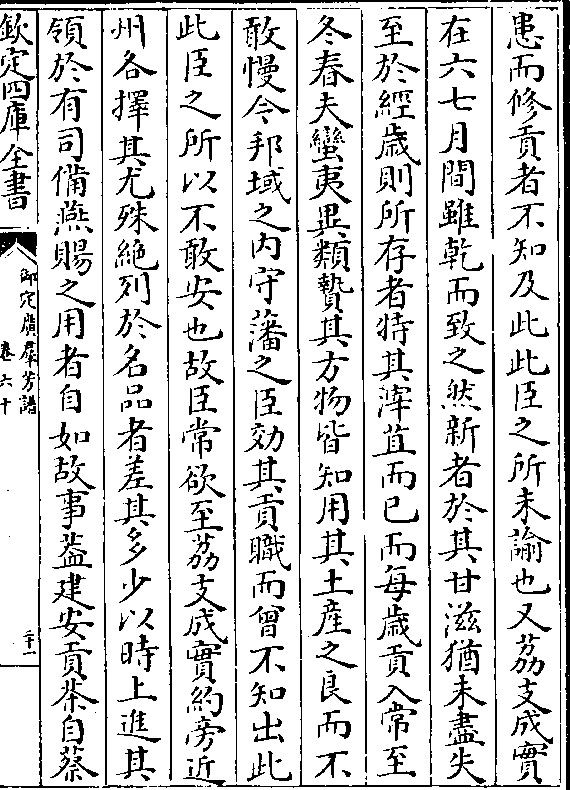 患而修貢者不知及此此臣之所未諭也又荔支成實
在六七月間雖乾而致之然新者於其甘滋猶未盡失
至於經歲則所存者特其滓苴而已而每歲貢入常至
冬春夫蠻夷異類贄其方物皆知用其土產之良而不
敢慢今邦域之内守藩之臣効其貢職而曾不知出此
此臣之所以不敢安也故臣常欲至荔支成實約旁近
州各擇其尤殊絶列於名品者差其多少以時上進其
領於有司備燕賜之用者自如故事葢建安貢茶自蔡
欽定四庫全書
御定廣羣芳譜
卷六十